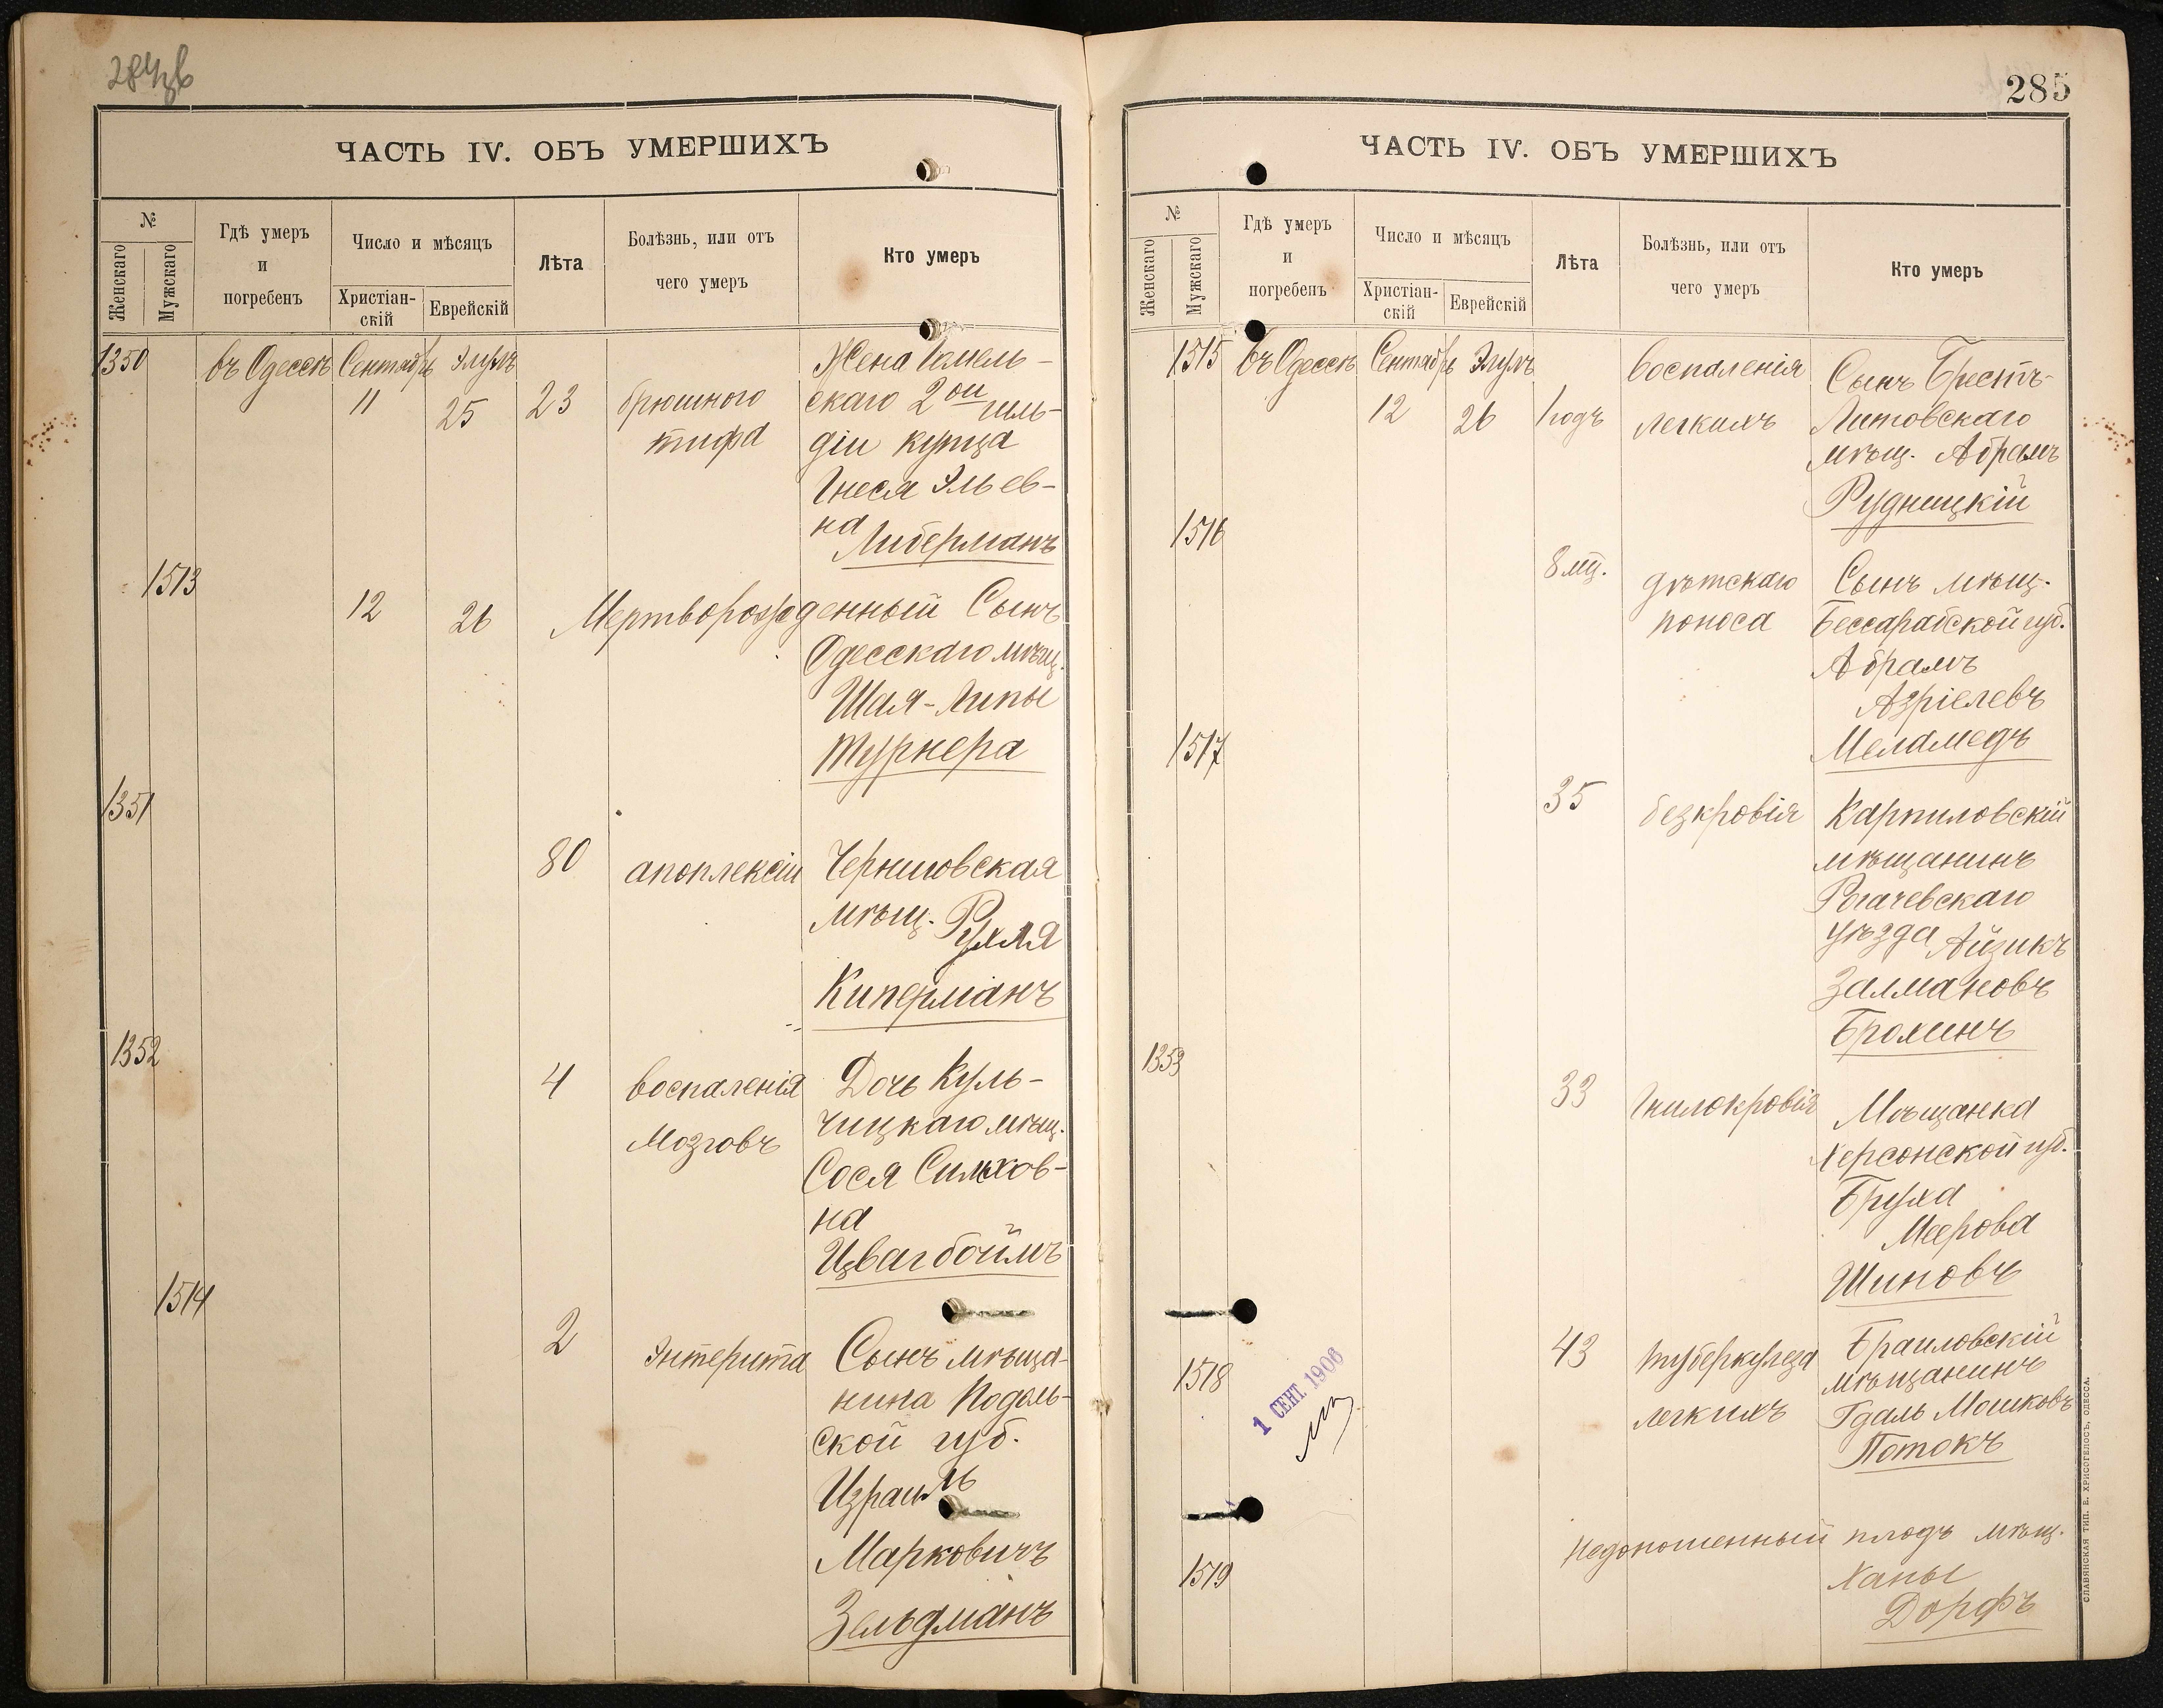 284об
ЧАСТЬ IV. ОБЪ УМЕРШИХЪ
№
Женскаго
Мужскаго
Гдѣ умеръ
и
погребенъ
Число и мѣсяцъ
Христіан-
скій
Еврейскій
Лѣта
Болѣзнь, или отъ
чего умеръ
Кто умеръ
1350 въ Одессѣ Сентябрь Элулъ Жена
11 25 23 брюшного скаго 2ой гиль-
тифа діи купца
Гнеся Эльев-
на
Либерманъ
1513 12 26 Мертворожденный Сынъ
Одесскаго мѣщ.
Шая-Липы
Турнера
1351
80 апоплексіи Черниговская
мѣщ. Рухля
Киперманъ
1352
4 воспаленія Дочь Куль-
мозговъ чицкаго мѣщ.
Сося Симхов-
на
Цвагбоймъ
1514
2 Энтерита Сынъ мѣща-
нина Подоль-
ской губ.
Израиль
Марковичъ
Зельдманъ
285
ЧАСТЬ IV. ОБЪ УМЕРШИХЪ
№
Женскаго
Мужскаго
Гдѣ умеръ
и
погребенъ
Число и мѣсяцъ
Христіан-
скій
Еврейскій
Лѣта
Болѣзнь, или отъ
чего умеръ
Кто умеръ
1515 въ Одессѣ Сентябрь Элулъ воспаленія Сынъ Брестъ-
12 26 1 годъ легкихъ Литовскаго
мѣщ. Абрамъ
Рудницкій
1516
8 мц. дѣтскаго Сынъ мѣщ.
поноса Бессарабской губ.
Абрамъ
Азріелевъ
Меламедъ
1517
35 безкровія Карпиловскій
мѣщанинъ
Рогачевскаго
уѣзда Айзикъ
Залмановъ
Брохинъ
1353
33 Гнилокровія Мѣщанка
Херсонской губ.
Бруха
Меерова
Шиновъ
1518
43 туберкулеза Браиловскій
легкихъ мѣщанинъ
Гдаль Мошковъ
Потокъ
1 СЕНТ 1906
1519
Недоношенный плодъ мѣщ.
Ханы
Дорфъ
СЛАВЯНСКАЯ ТИП. Е. ХРИСОГЕЛОСЪ, ОДЕССА.